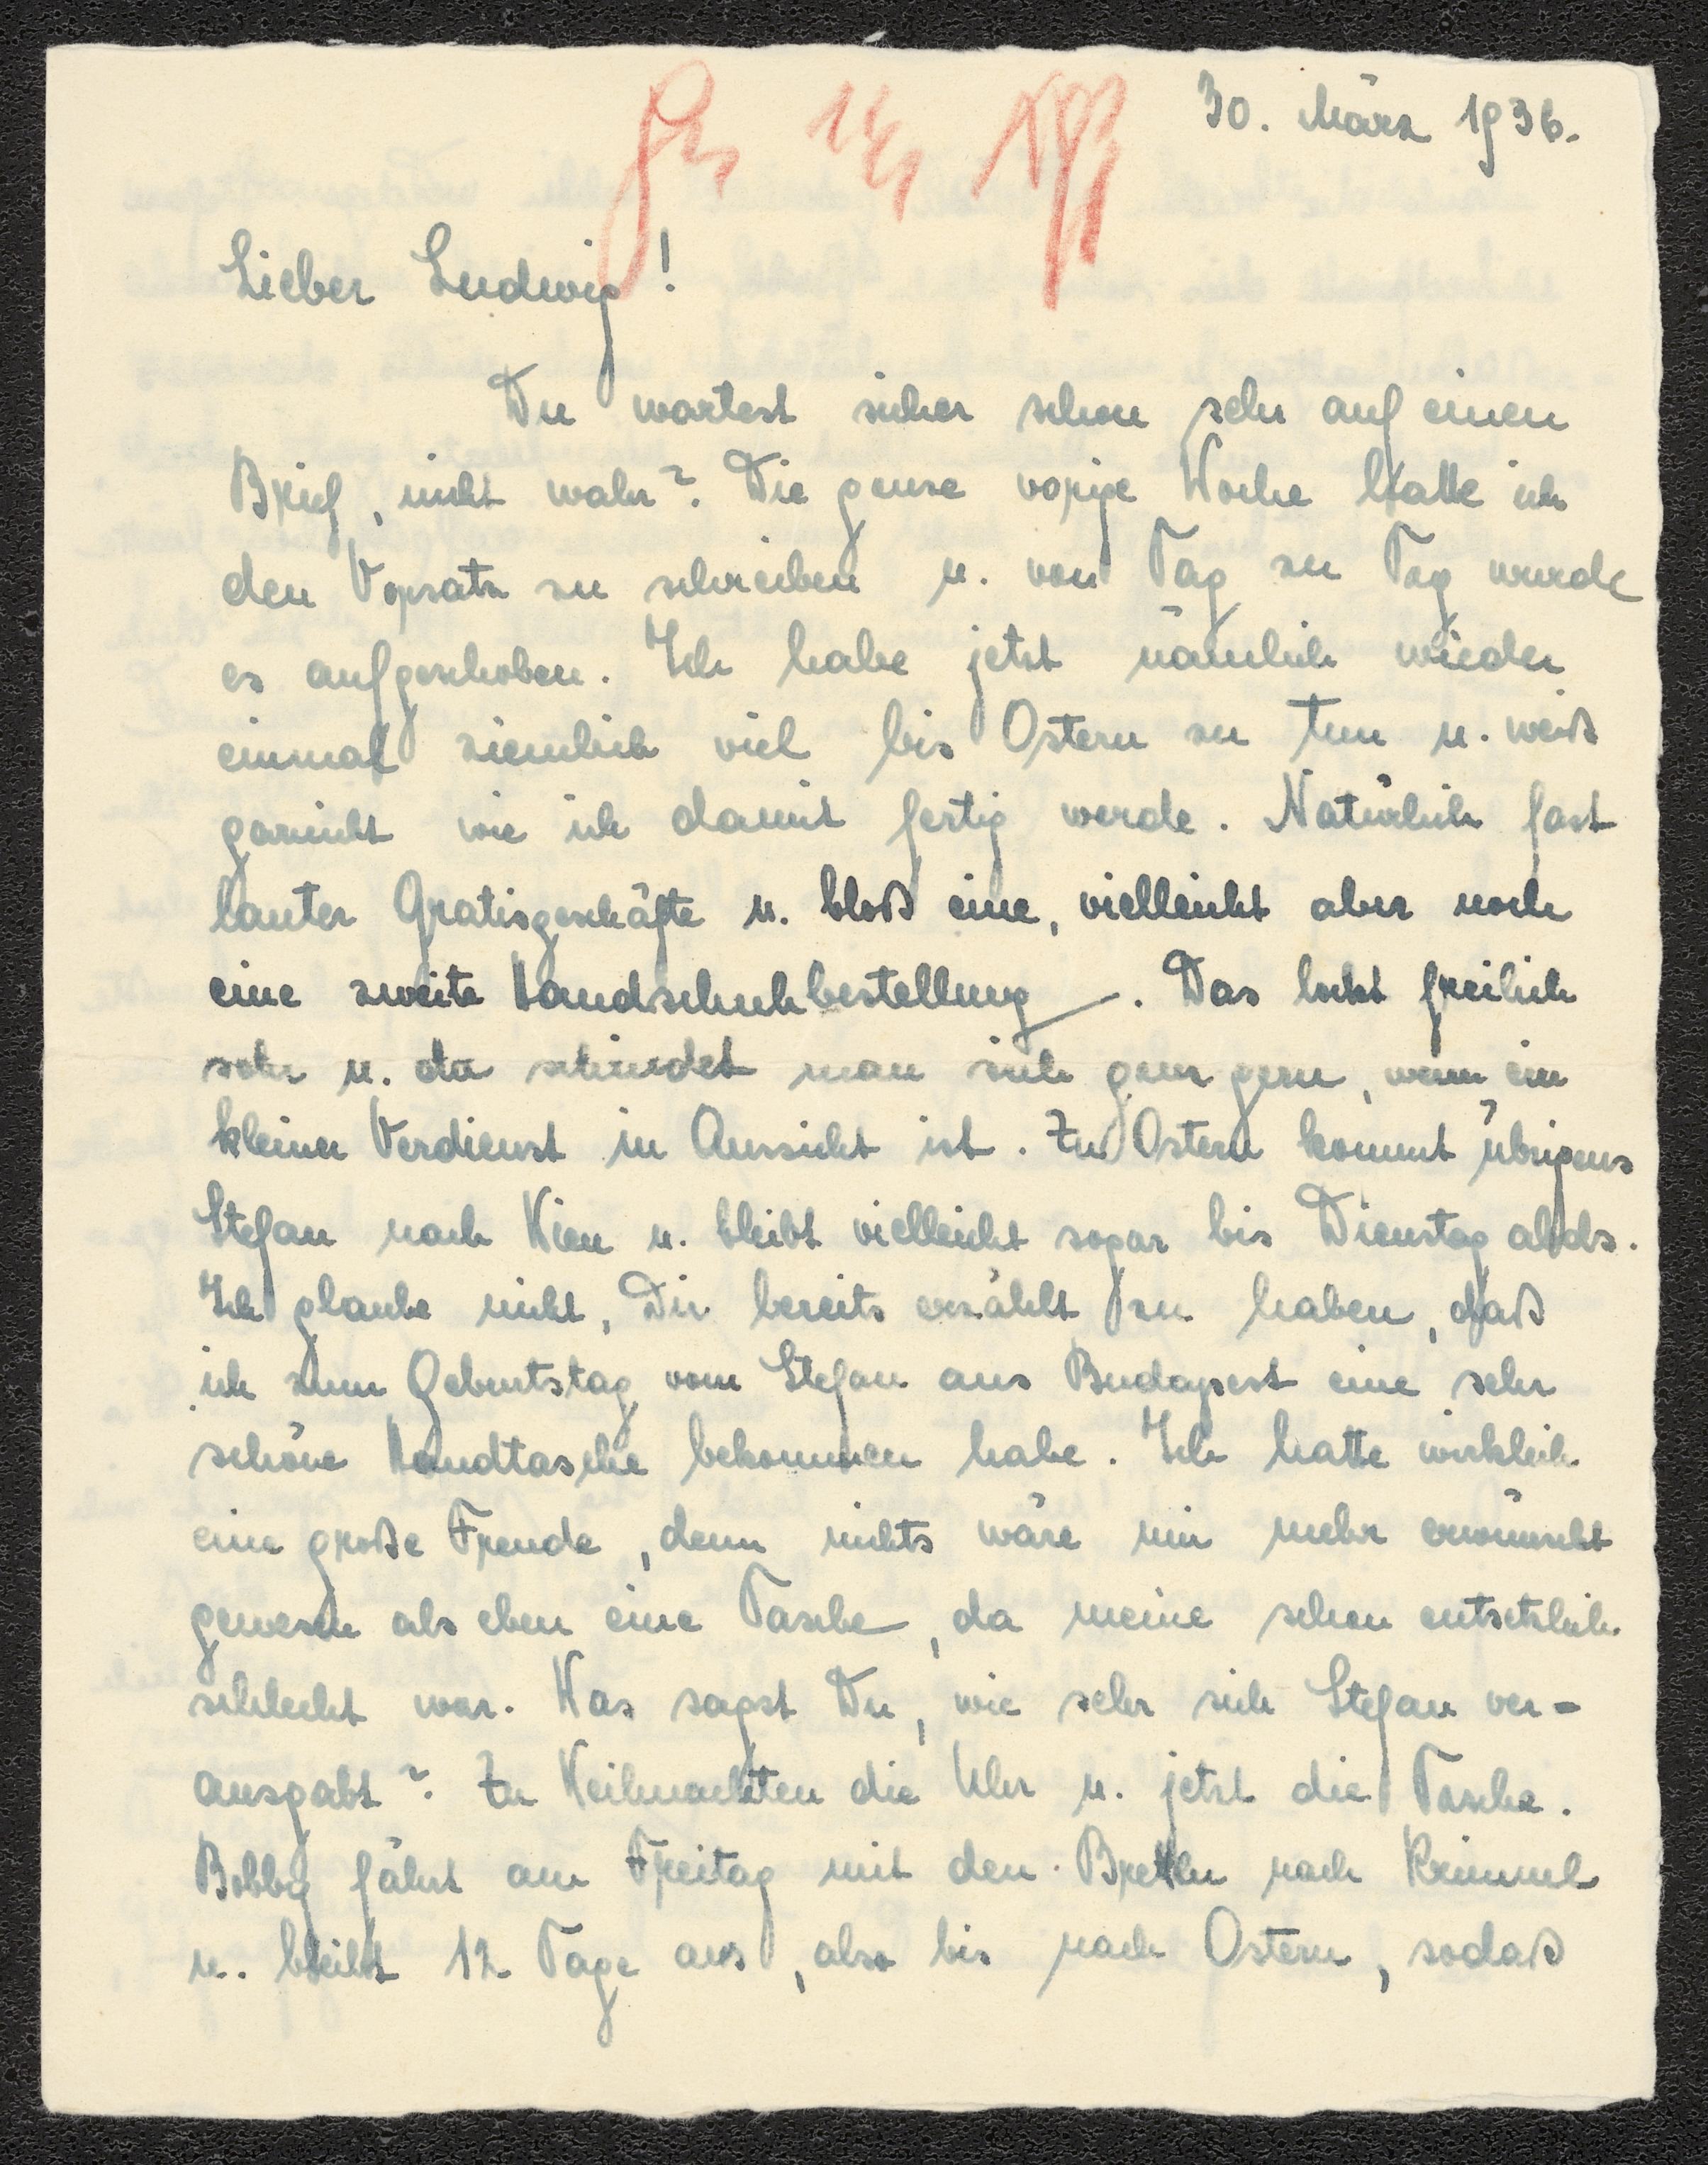 30. März 1936.
Lieber Ludwig!
Du wartest sicher schon sehr auf einen
Brief, nicht wahr? Die ganze vorige Woche hatte ich
den Vorsatz zu schreiben u. von Tag zu Tag wurde
es aufgeschoben. Ich habe jetzt nämlich wieder
einmal ziemlich viel bis Ostern zu tun u. weiß
garnicht wie ich damit fertig werde. Natürlich fast
lauter Gratisgeschäfte u. bloß eine, vielleicht aber noch
eine zweite Handschuhbestellung. Das lockt freilich
sehr u. da schindet man sich ganz gern, wenn ein
kleiner Verdienst in Aussicht ist. Zu Ostern kommt übrigens
Stefan nach Wien u. bleibt vielleicht sogar bis Dienstag abds.
Ich glaube nicht, Dir bereits erzählt zu haben, daß
ich zum Geburtstag vom Stefan aus Budapest eine sehr
schöne Handtasche bekommen habe. Ich hatte wirklich
eine große Freude, denn nichts wäre mir mehr erwünscht
gewesen als eben eine Tasche, da meine schon entsetzlich
schlecht war. Was sagst Du, wie sehr sich Stefan ver-
ausgabt? Zu Weihnachten die Uhr u. jetzt die Tasche.
Bobby fährt am Freitag mit den Bretln nach Krimml
u. bleibt 12 Tage aus, also bis nach Ostern, sodaß